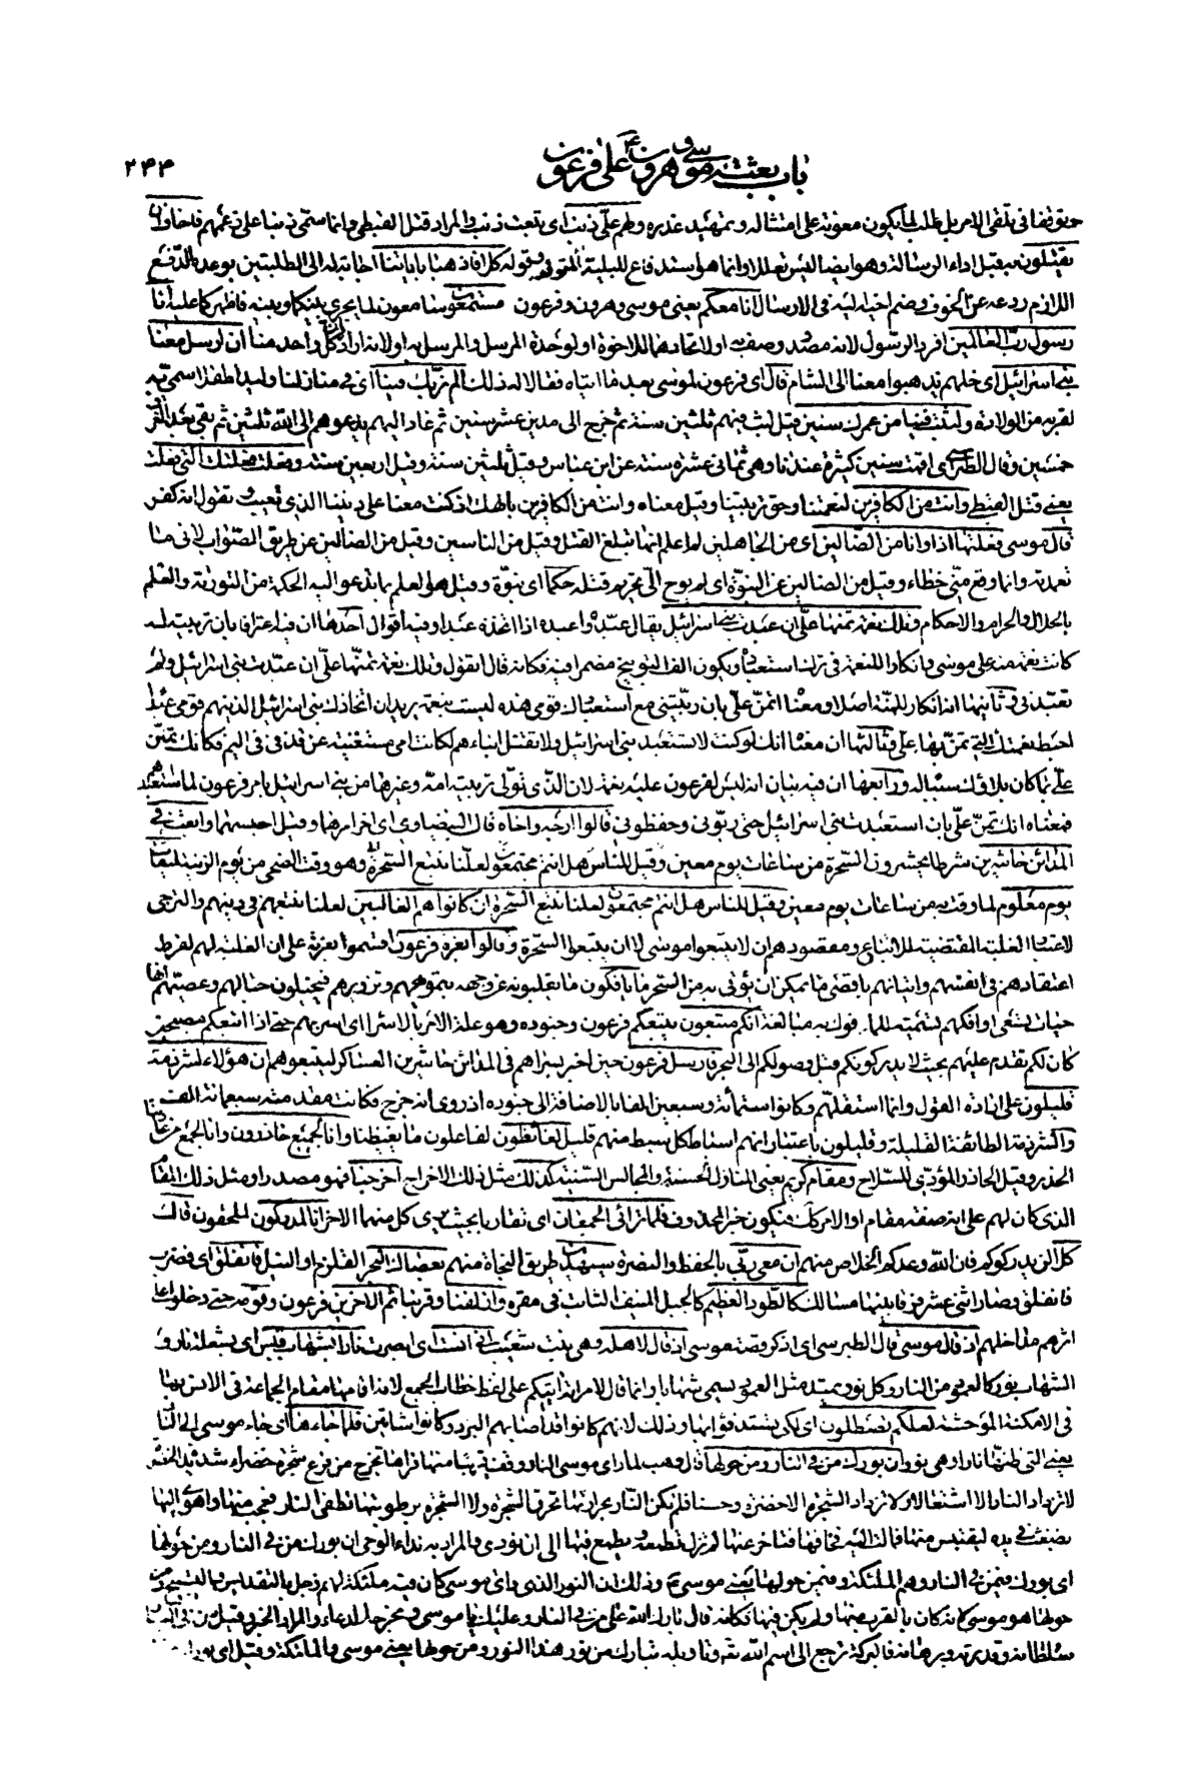 باب بعثة موسى وهرون ع على فرعون
۲۴۴
توقفا في تلقي الامر بل طلب لما يكون معونة على امتثاله وتمهيد عذره ولهم على ذنب اى تبعة ذنب والمراد قتل القبطي وانما سمى ذنبا على زعمهم فاخاف ان
يقتلون به قبل اداء الرسالة وهو ايضا ليس تعللا وانما هو استدفاع للبلية المتوقعة وقوله كلا فاذهبا باياتنا اجابة له الى الطلبتين بوعده بالدفع
اللازم ردعه عن الخوف وضم اخيه اليه في الارسال انا معكم يعني موسى وهرون وفرعون مستمعون سامعون لما يجري بينكما وبينه فاظهركما عليه انا
رسول رب العالمين افرد الرسول لانه مصدر وصف به او لاتحادهما للاخوة او لوحدة المرسل والمرسل به او لانه اراد ان كل واحد منا ان ارسل معنا
بني اسرائيل اى خلهم يذهبوا معنا الى الشام قال اى فرعون لموسى بعد ما اتياه فقالا له ذلك الم نربك فينا اى في منازلنا وليدا طفلا سمى به
لقربه من الولادة ولبثت فينا من عمرك سنين قيل لبث فيهم ثلثين سنة ثم خرج الى مدين عشر سنين ثم عاد اليهم يدعوهم الى الله ثلثين ثم بقى بعد الغرق
خمسين وقال الطبرسي اى اقمت سنين كثيرة عندنا وهي ثماني عشرة سنة عن ابن عباس وقيل ثلثين سنة وقيل اربعين سنة وفعلت فعلتك التي فعلت
يعني قتل القبطي وانت من الكافرين لنعمتنا وحق تربيتنا وقيل معناه وانت من الكافرين بالهك اذ كنت معنا على ديننا الذي تعيب تقول انه كفر
قال موسى فعلتها اذا وانا من الضالين اى من الجاهلين لم اعلم انها تبلغ القتل وقيل من الناسين وقيل من الضالين عن طريق الصواب لاني ما
تعمدته وانما وقع مني خطاء وقيل من الضالين عن النبوة اى لم يوح الى تحريم قتله حكما اى نبوة وقيل هو العلم بما تدعو اليه الحكمة من التورية والعلم
بالحلال والحرام والاحكام وتلك نعمة تمنها على ان عبدت بني اسرائيل يقال عبده واعبده اذا اتخذه عبدا وفيه اقوال احدها ان فيه اعترافا بان تربيته له
كانت نعمة منه على موسى وانكارا للنعمة في ترك استعباده ويكون الف التوبيخ مضمرا فيه فكانه قال اتقول وتلك نعمة تمنها على ان عبدت بني اسرائيل ولم
تعبدني وثانيها انه انكار للمنة اصلا ومعناه اتمن على بان ربيتني مع استعبادك قومي هذه ليست بنعمة يريد ان اتخاذك بني اسرائيل الذين هم قومي عبيدا
احبط نعمتك التي تمن بها على وثالثها ان معناه انك لو كنت لا تستعبد بني اسرائيل ولا تقتل ابناءهم لكانت امي مستغنية عن قذفي في اليم فكانك تمتن
على بما كان بلاؤك سببا له ورابعها ان فيه بيان انه ليس لفرعون عليه نعمة لان الذي تولى تربيته امه وغيرها من بني اسرائيل بامر فرعون لما استعبدهم
فمعناه انك تمن على بان استعبدت بني اسرائيل حتى ربوني وحفظوني قالوا ارجه واخاه قال البيضاوي اى اخر امرهما وقيل احبسهما وابعث في
المدائن حاشرين شرطا يحشرون السحرة من ساعات يوم معين وقيل للناس هل انتم مجتمعون لعلنا نتبع السحرة وهو وقت الضحى من يوم الزينة لميقات
يوم معلوم لما وقت به من ساعات يوم معين وقيل للناس هل انتم مجتمعون لعلنا نتبع السحرة ان كانوا هم الغالبين لعلنا نتبعهم في دينهم والترجي
لاعتبار الغلبة المقتضية للاتباع ومقصودهم ان لا يتبعوا موسى لا ان يتبعوا السحرة وقالوا بعزة فرعون اقسموا بعزته على ان الغلبة لهم لفرط
اعتقادهم في انفسهم واتيانهم باقصى ما يمكن ان يؤتى به من السحر ما يافكون ما يقلبونه عن وجهه بتمويههم وتزويرهم فيخيلون حبالهم وعصيهم انها
حيات تسعى او افكهم تسمية للمافوك به مبالغة انكم متبعون يتبعكم فرعون وجنوده وهو علة الامر بالاسراء اى اسر بهم حتى اذا اتبعكم مصبحين
كان لكم تقدم عليهم بحيث لا يدركونكم قبل وصولكم الى البحر فارسل فرعون حين اخبر بسراهم في المدائن حاشرين العساكر ليتبعوهم ان هؤلاء لشرذمة
قليلون على ارادة القول وانما استقلهم وكانوا ستمائة وسبعين الفا بالاضافة الى جنوده اذ روى انه خرج فكانت مقدمته سبعمائة الف
والشرذمة الطائفة القليلة وقليلون باعتبار انهم اسباط كل سبط منهم قليل لغائظون لفاعلون ما يغيظنا وانا لجميع حاذرون وانا لجمع من عادتنا
الحذر وقيل الحاذر المؤدي للسلاح ومقام كريم يعني المنازل الحسنة والمجالس السنية كذلك مثل ذلك الاخراج اخرجنا فهو مصدر او مثل ذلك المقام
الذي كان لهم على انه صفة مقام او الامر كذلك فيكون خبر المحذوف فلما تراءى الجمعان اى تقاربا بحيث يرى كل منهما الاخر انا لمدركون لملحقون قال
كلا لن يدركوكم فان الله وعدكم الخلاص منهم ان معي ربي بالحفظ والنصرة سيهدين طريق النجاة منهم بعصاك البحر القلزم او النيل فانفلق اى فضرب
فانفلق وصار اثنى عشر فرقا بينها مسالك كالطود العظيم كالجبل المنيف الثابت في مقره وازلفنا وقربنا ثم الاخرين فرعون وقومه حتى دخلوا على
اثرهم مداخلهم اذ قال موسى قال الطبرسي اى اذكر قصة موسى اذ قال لاهله وهي بنت شعيب اني انست اى ابصرت نارا بشهاب قبس اى بشعلة نار و
الشهاب نور كالعمود من النار وكل نور يمتد مثل العمود يسمى شهابا وانما قال لامراته اتيكم على لفظ خطاب الجمع لانه اقامها مقام الجماعة في الانس بها
في الامكنة الموحشة لعلكم تصطلون اى لكي تستدفؤا بها وذلك لانهم كانوا قد اصابهم البرد وكانوا شاتين فلما جاءها اى جاء موسى الى النار
يعني التي ظنها نارا وهي نور ان بورك من في النار ومن حولها قال وهب لما راى موسى النار وقف قريبا منها فراها تخرج من فرع شجرة خضراء شديدة الخضرة
لا تزداد النار الا اشتعالا ولا تزداد الشجرة الا خضرة وحسنا فلم تكن النار بحرارتها تحرق الشجرة ولا الشجرة برطوبتها تطفى النار فعجب منها واهوى اليها
بضغث في يده ليقتبس منها فمالت اليه فخافها فتاخر عنها لم تزل تطمعه ويطمع فيها الى ان نودي والمراد به نداء الوحي ان بورك من في النار ومن حولها
اى بورك فيمن في النار وهم الملئكة وفيمن حولها يعني موسى وذلك ان النور الذي راى موسى كان فيه ملئكة لهم زجل بالتقديس والتسبيح ومن
حولها هو موسى لانه كان بالقرب منها ولم يكن فيها فكانه قال بارك الله على من في النار وعليك يا موسى ومخرجه الدعاء والمراد الخبر وقيل من في النار
سلطانه وقدرته وبرهانه فالبركة ترجع الى اسم الله تعالى وتاويله تبارك من نور هذا النور ومن حولها يعني موسى والملئكة وقيل اى بورك